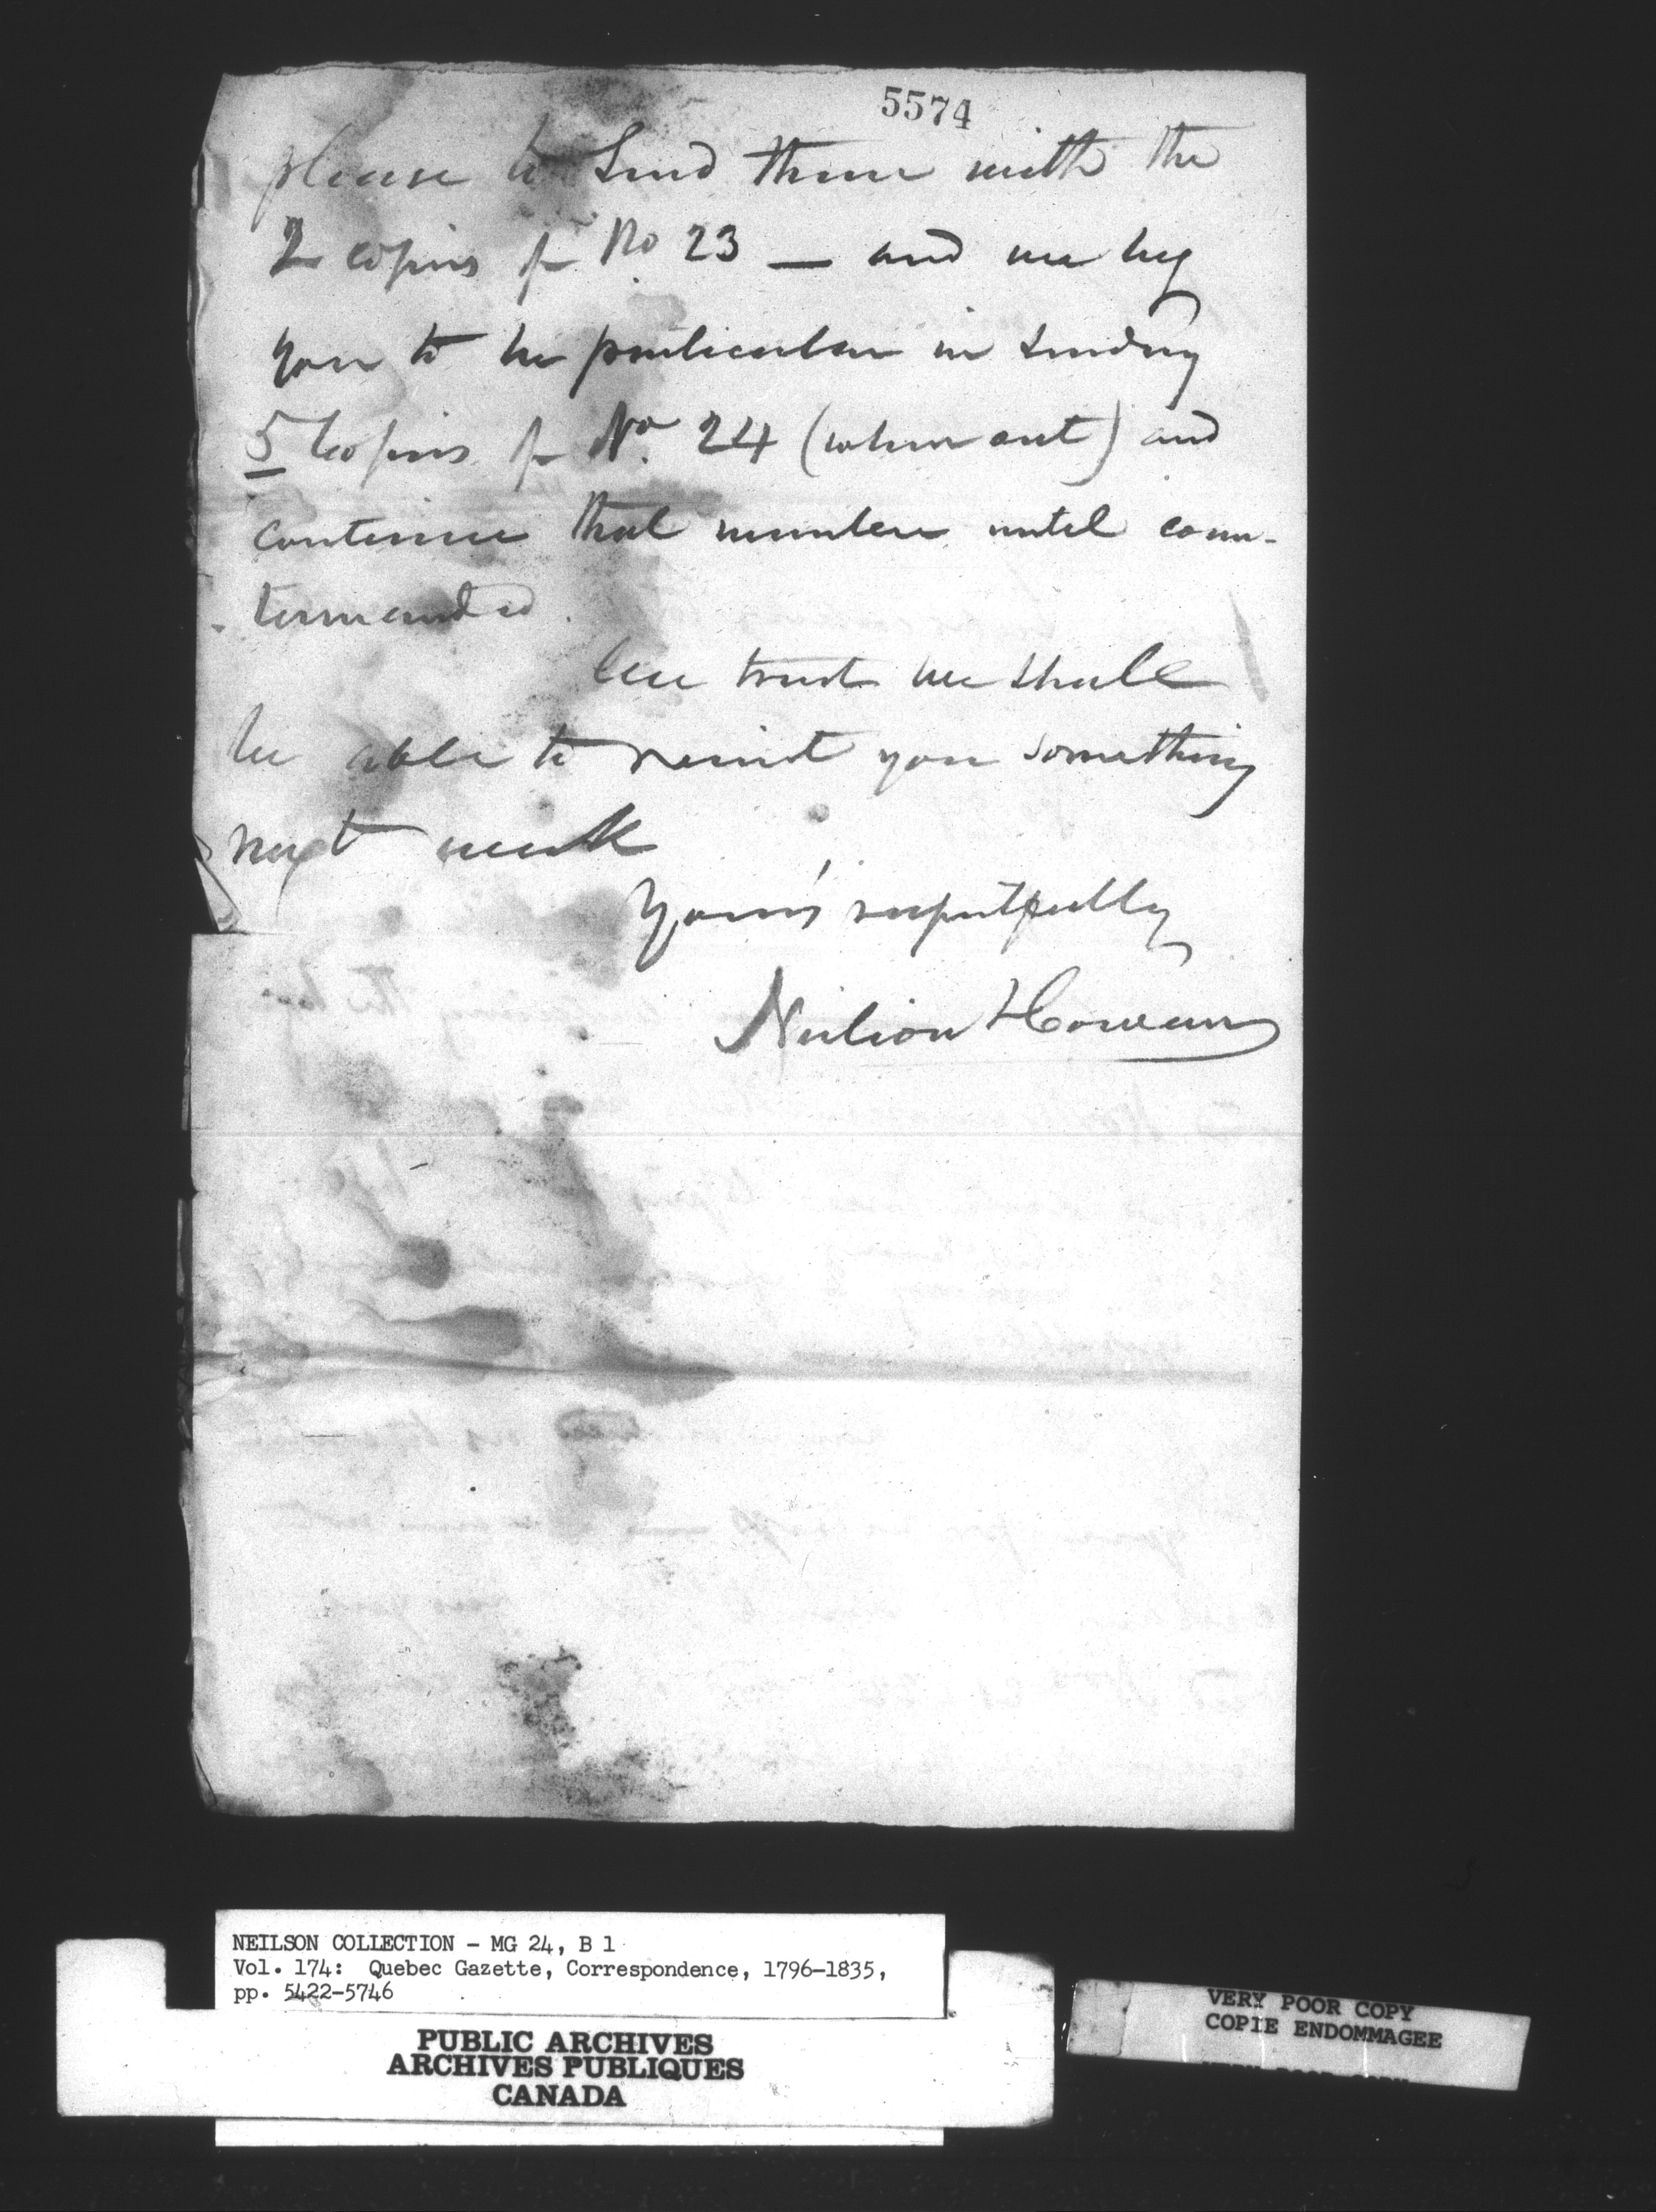 5574
please to Send them with the
2 copies of No 23 — and we beg
you to be particular in sending
5 Copies of No. 24 (when out) and
continue that number until coun-
-termanded.
We trust we shall
be able to remit you something
next week
Your's respectfully
Neilson & Cowan
NEILSON COLLECTION - MG 24, B 1
Vol. 174: Quebec Gazette, Correspondence, 1796-1835,
pp. 5422-5746
PUBLIC ARCHIVES
ARCHIVES PUBLIQUES
CANADA
VERY POOR COPY
COPIE ENDOMMAGEE